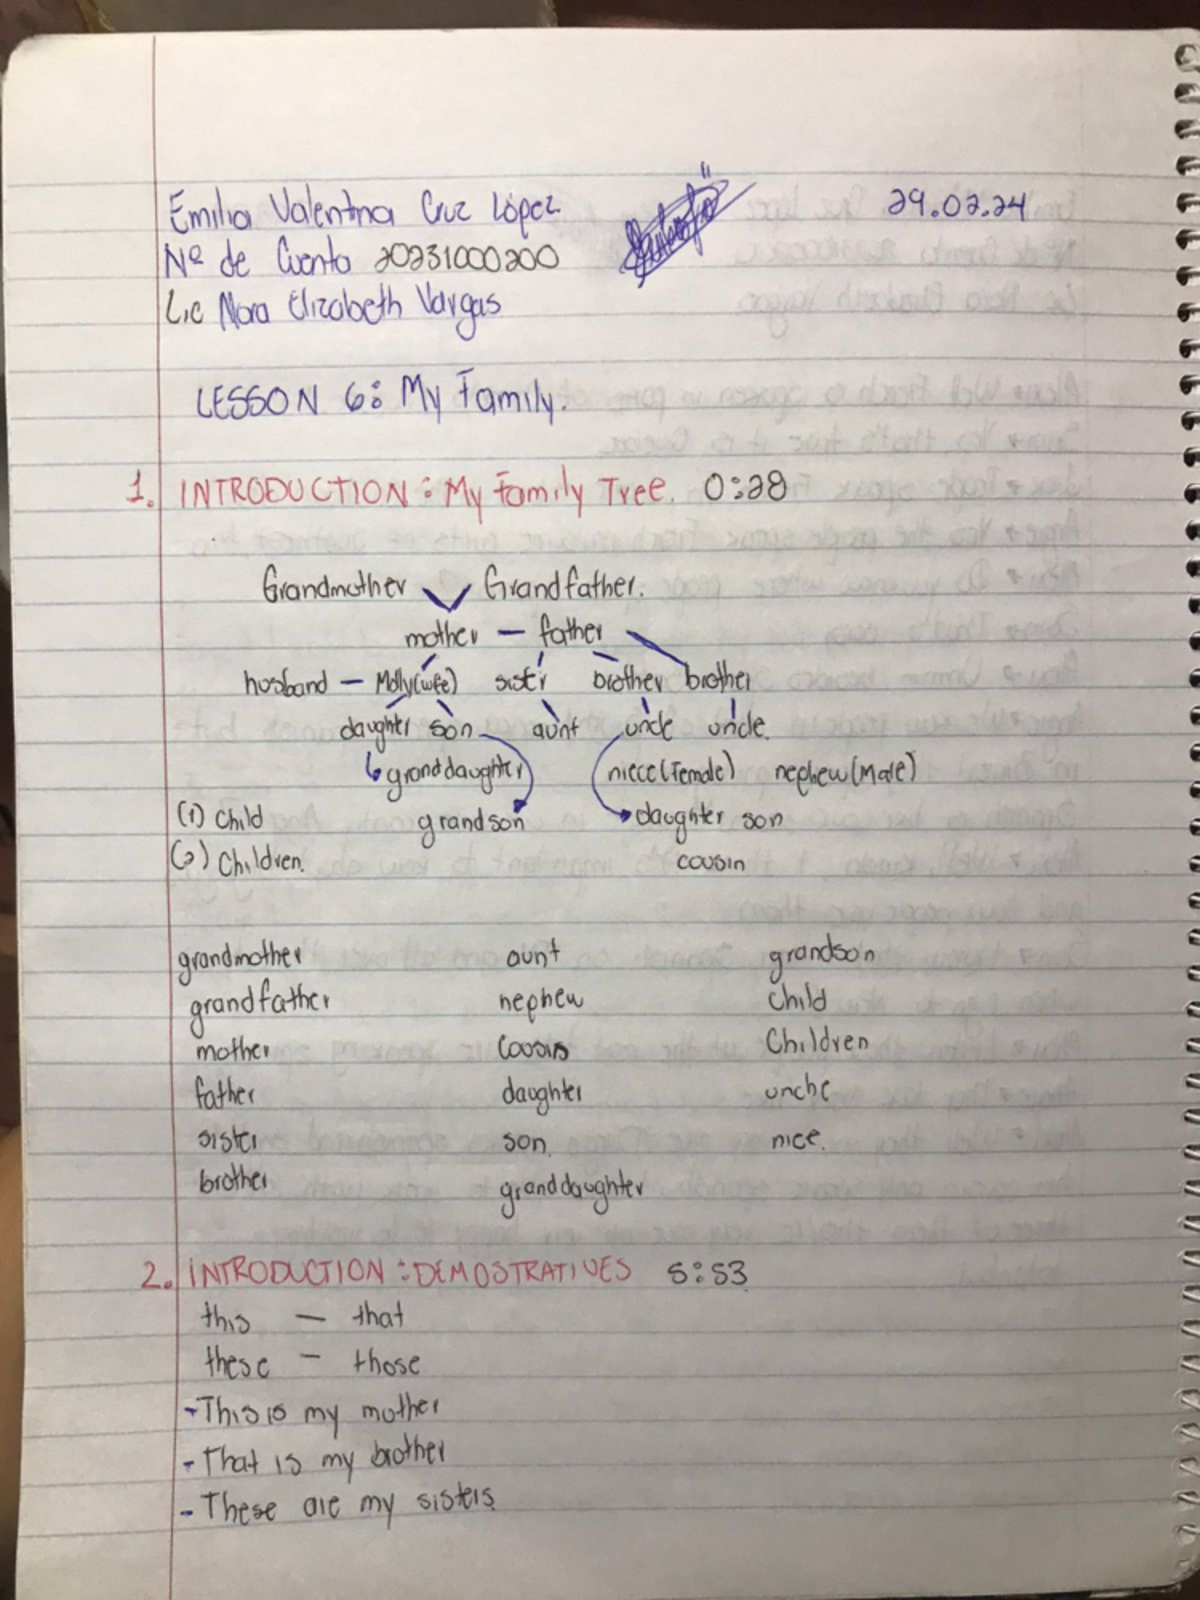 Emilia Valentina Cruz López 29.02.24
Nº de Cuenta 20231000200
Lic Nora Elizabeth Vargas
LESSON 6: My Family.
1. INTRODUCTION: My Family Tree. 0:28
Grandmother Grandfather.
mother — father
husband — Molly(wife) sister brother brother
daughter son aunt uncle uncle.
granddaughter niece(Female) nephew(Male)
(1) Child grandson daughter son
(2) Children. cousin
grandmother aunt grandson
grandfather nephew Child
mother Cousin Children
father daughter unche
sister son. nice.
brother granddaughter
2. INTRODUCTION: DEMOSTRATIVES 5:53
this — that
these — those
- This is my mother
- That is my brother
- These are my sisters